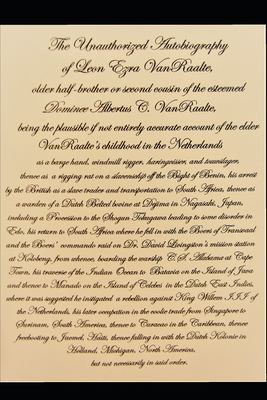 The Unauthorized Autobiography
of Leon Ezra VanRaalte,
older half-brother or second cousin of the esteemed
Dominee Albertus C. VanRaalte,
being the plausible if not entirely accurate account of the elder
VanRaalte's childhood in the Netherlands
as a barge hand, windmill rigger, haringvisser, and townslager,
thence as a rigging rat on a slaveship off the Bight of Benin, his arrest
by the British as a slave trader and transportation to South Africa, thence as
a warden of a Dutch Belted bovine at Dejima in Nagasaki, Japan,
including a Procession to the Shogun Tokugawa leading to some disorder in
Edo, his return to South Africa where he fell in with the Boers of Transvaal
and the Boers' commando raid on Dr. David Livingston's mission station
at Kolobeng, from whence, boarding the warship C.S. Alabama at Cape
Town, his traverse of the Indian Ocean to Batavia on the Island of Java
and thence to Manado on the Island of Celebes in the Dutch East Indies,
where it was suggested he instigated a rebellion against King Willem III of
the Netherlands, his later occupation in the coolie trade from Singapore to
Surinam, South America, thence to Curacao in the Caribbean, thence
freebooting to Jacmel, Haiti, thence falling in with the Dutch Kolonie in
Holland, Michigan, North America,
but not necessarily in said order.